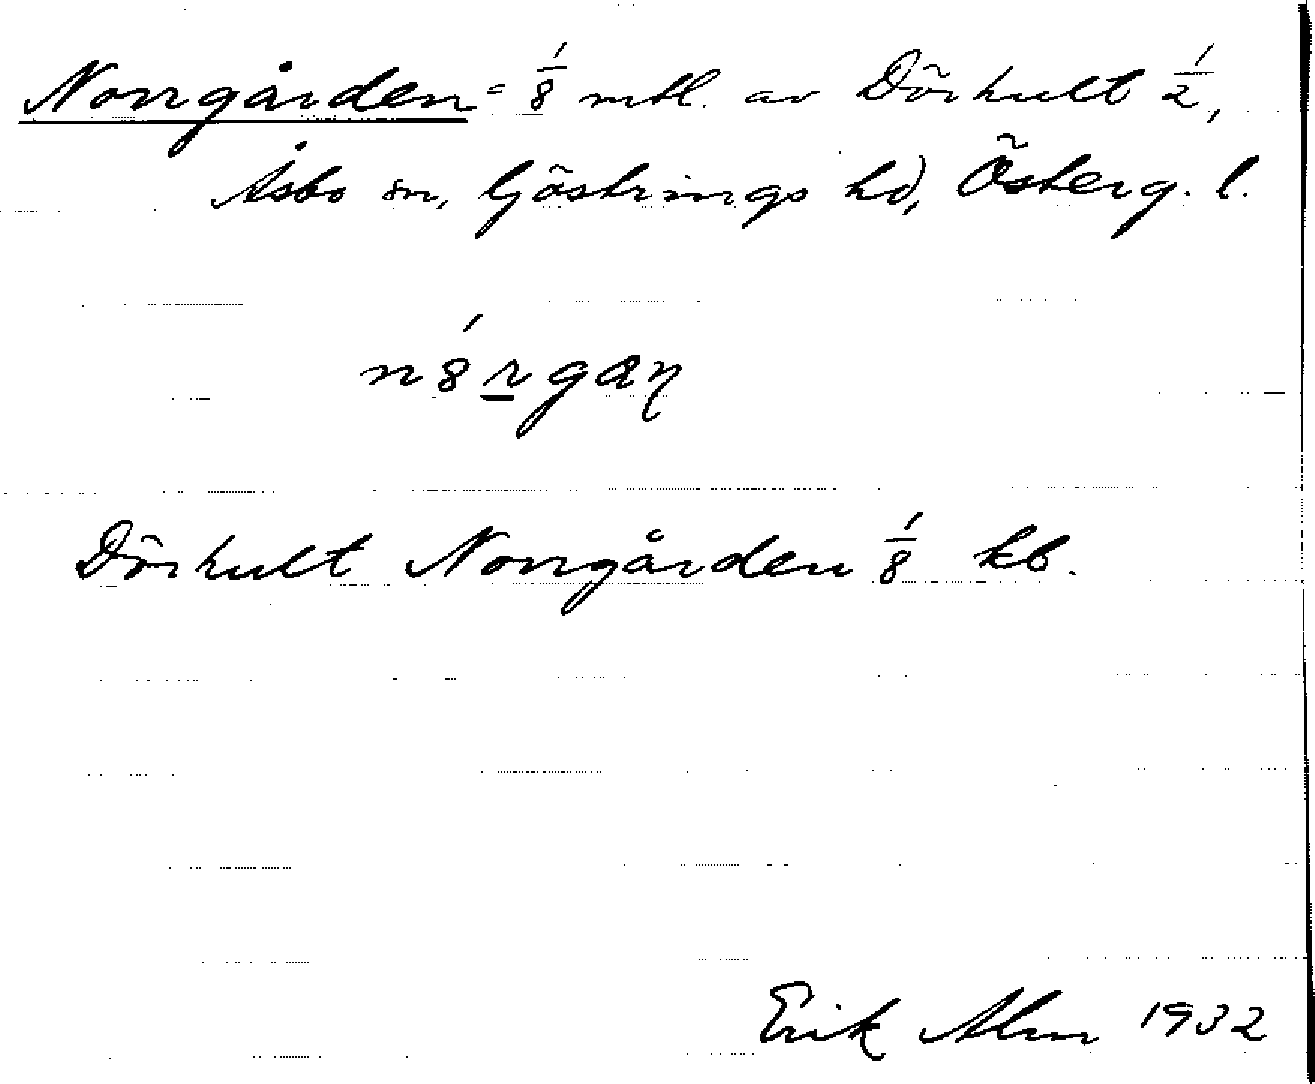 Norrgården = 1/8 mtl. av Dörhult 1/2,
Åsbo sn, Göstrings hd, Österg. l.
n8́rgaɳ
Dörhult Norrgården 1/8 kb.
Erik Alm 1932